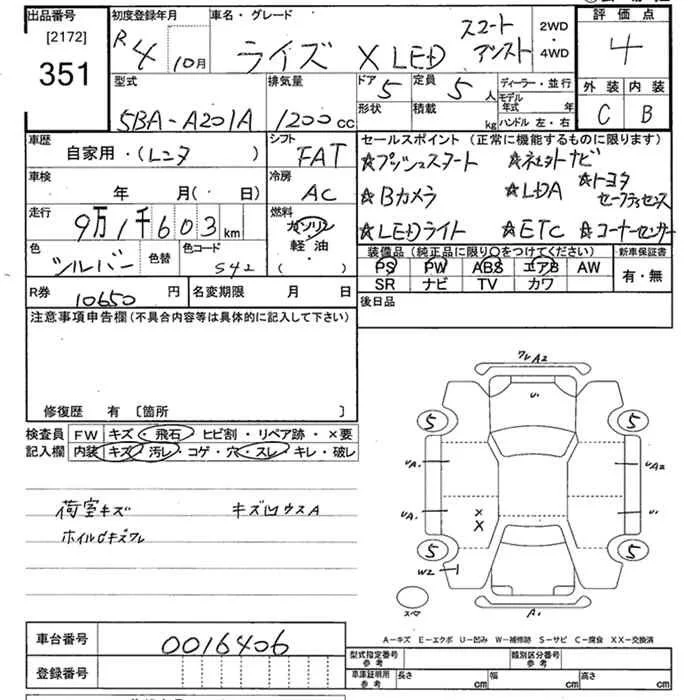 出品番号
[2172]
351
初度登録年月
R4 10月
車名・グレード
ライズ X LED
スマート
アシスト
2WD
・
4WD
評価点
4
外装 内装
C B
型式
5BA-A201A
排気量
1200cc
ドア 5
形状
定員 5人
積載 kg
ディーラー・並行
モデル年式 年
ハンドル 左・右
車歴
自家用・(レンタ )
シフト
FAT
車検
年 月(・ 日)
冷房
AC
走行
9万1千603km
燃料
ガソリン
軽油
( )
色
シルバー
色替
色コード
S42
R券 10650円
名変期限 月 日
セールスポイント(正常に機能するものに限ります)
☆プッシュスタート ☆ネットナビ
☆Bカメラ ☆LDA ☆トヨタセーフティセンス
☆LEDライト ☆ETC ☆コーナーセンサー
装備品(純正品に限り〇をつけてください)
PS PW ABS エアB AW
SR ナビ TV カワ
新車保証書
有・無
後日品
注意事項申告欄(不具合内容等は具体的に記入して下さい)
修復歴 有 〔箇所 〕
検査員
記入欄
FW キズ・飛石・ヒビ割・リペア跡・×要
内装 キズ・汚レ・コゲ・穴・スレ・キレ・破レ
荷室キズ キズ凹ウスA
ワレA2
U1
5 5
UA1 UA2
UA1 × U1
×
5 5
W2
スペア
A1
A-キズ E-エクボ U-凹み W-補修跡 S-サビ C-腐食 XX-交換済
車台番号
0016406
登録番号
型式指定番号
参考
類別区分番号
参考
車庫証明用
参考
長さ cm 幅 cm 高さ cm